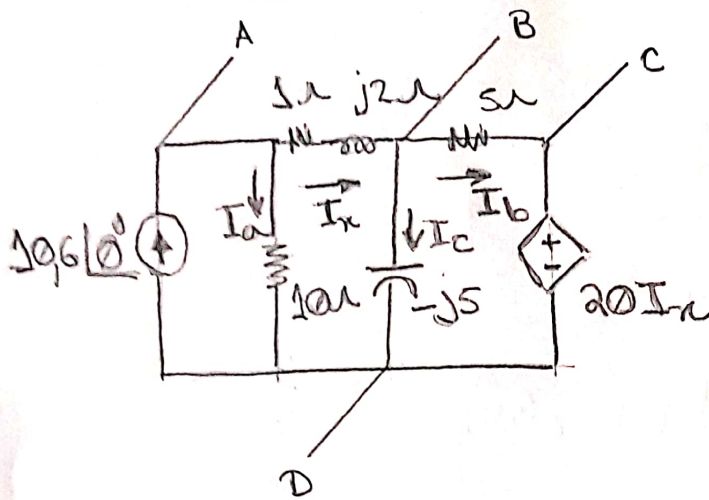 A
B
C
1Ω j2Ω 5Ω
10,6∠0°
Ia
Ix
Ic
Ib
10Ω
-j5
+
-
20Ix
D